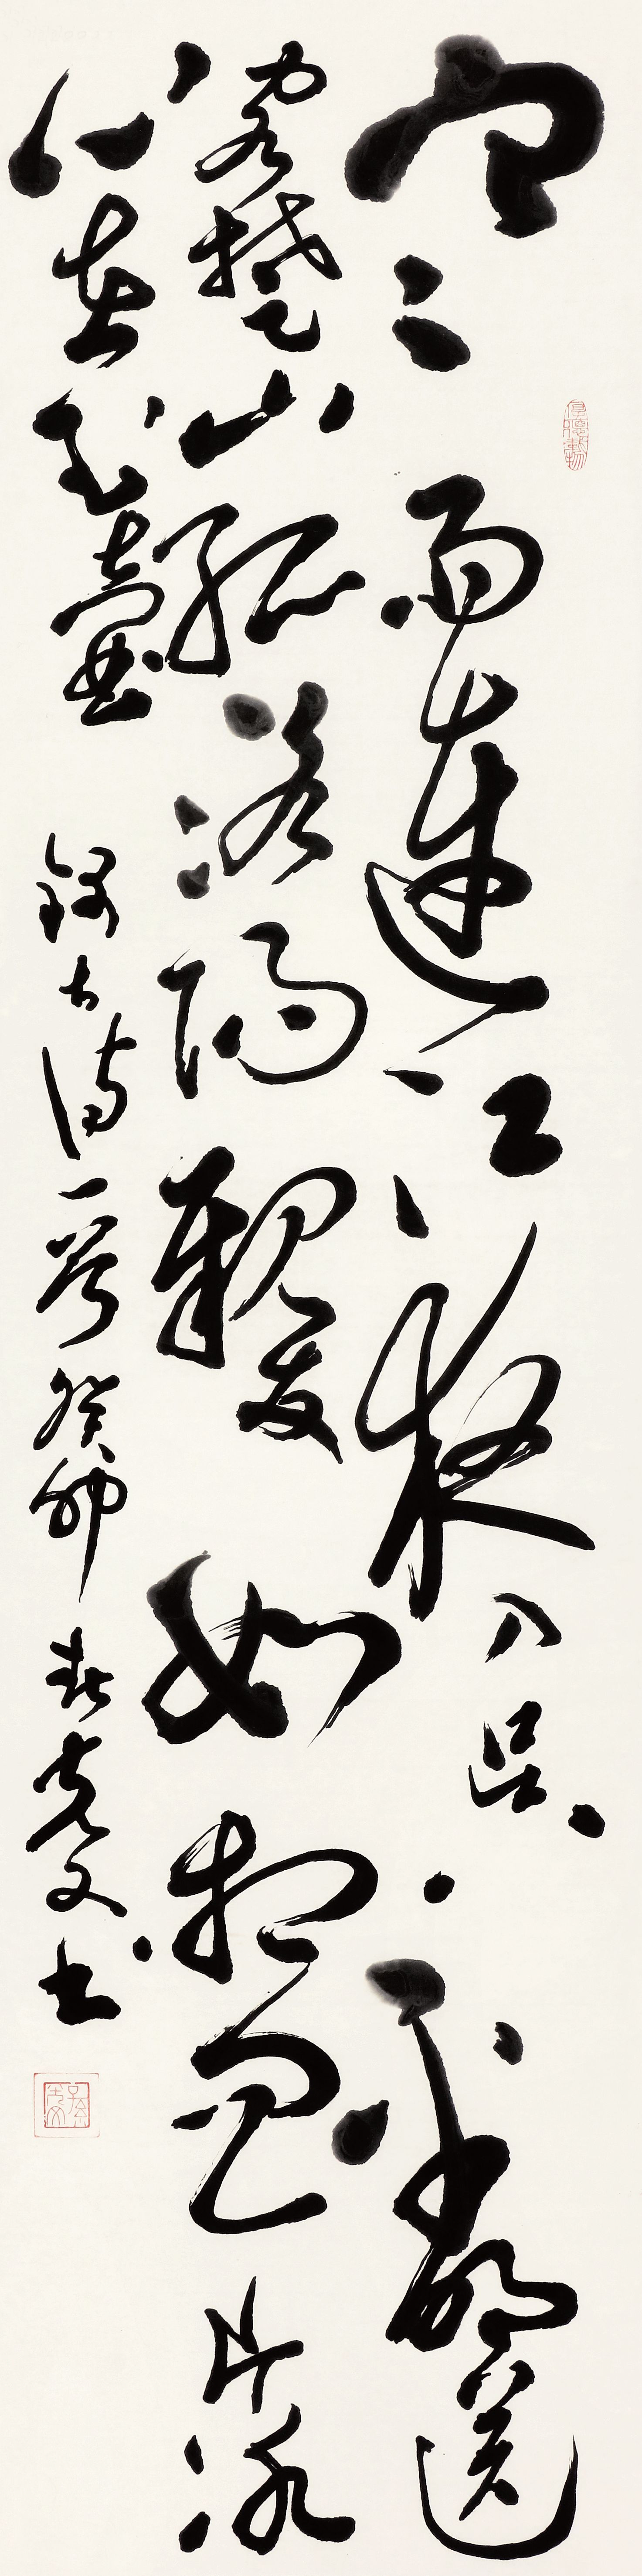 厚德載物
寒雨連江夜入吴平明送
客楚山孤洛陽親友如相問一片冰
心在玉壺 錄古詩一首癸卯春克文書